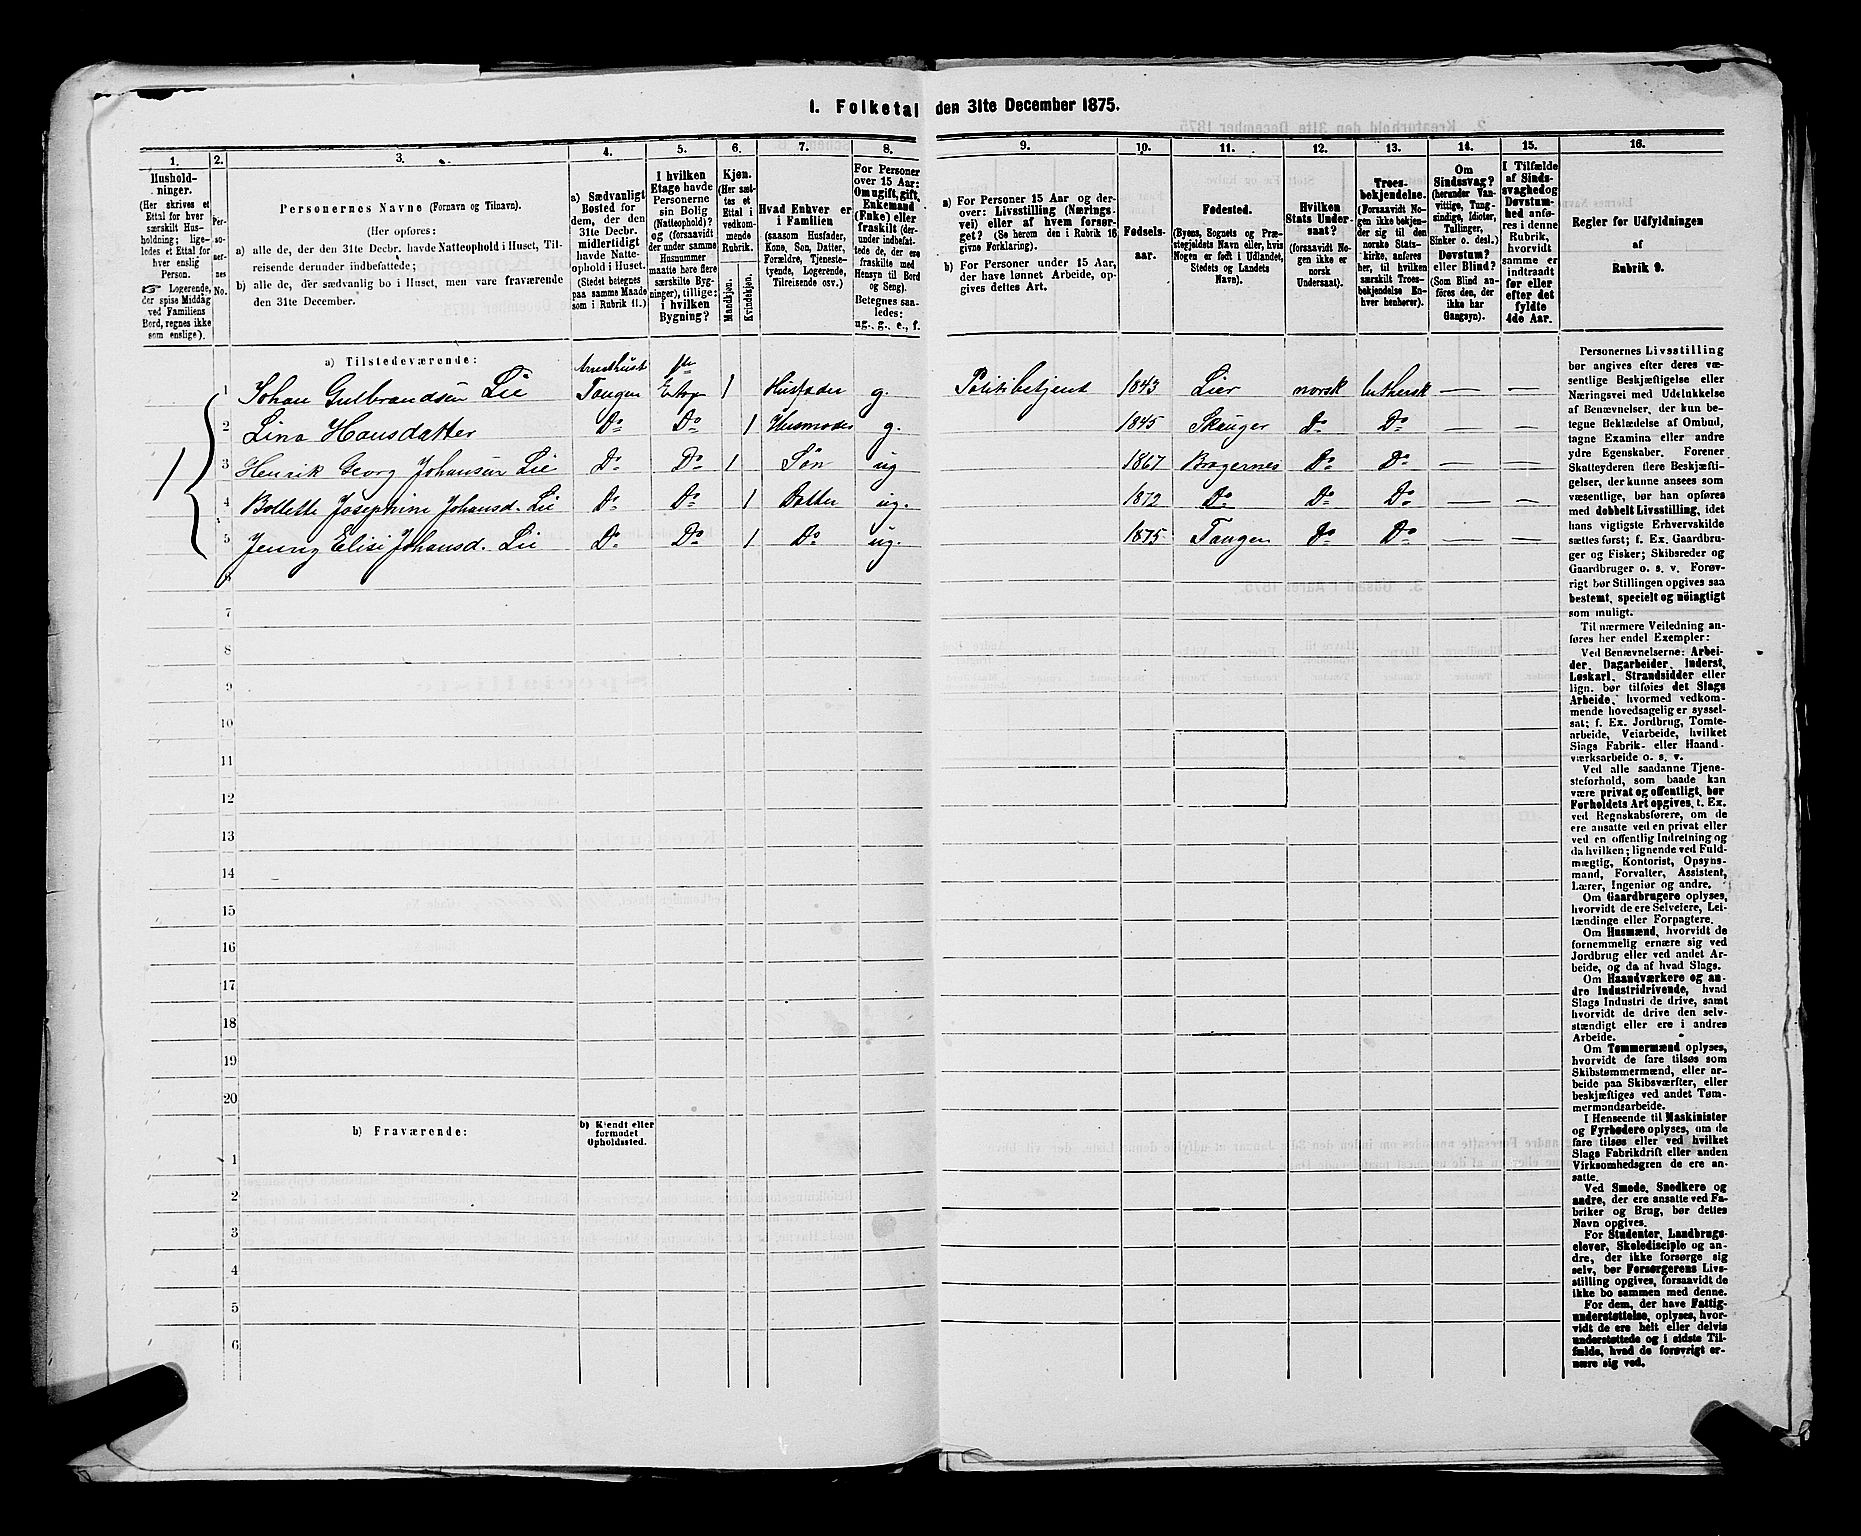 1. Folketal den 31te December 1875.
1.
2.
3.
4.
5.
6.
7.
8.
9.
10.
11.
12.
13.
14.
15.
16.
Hushold-
ninger.
(Her skrives et
Ettal for hver
særskilt Hus-
holdning; lige-
ledes et Ettal for
hver enslig
Person.
Logerende,
der spise Middag
ved Familiens
Bord, regnes ikke
som enslige).
Per-
so-
ner-
nes
No.
Personernes Navne (Fornavn og Tilnavn).
(Her opføres:
a) alle de, der den 31te Decbr. havde Natteophold i Huset, Til-
reisende derunder indbefattede;
b) alle de, der sædvanlig bo i Huset, men vare fraværende
den 31te December.
a) Sædvanligt
Bosted for
dem, der den
31te Decbr.
midlertidigt
havde Natte-
ophold i Huset.
(Stedet betegnes
paa samme Maade
som i Rubrik 11.)
I hvilken
Etage havde
Personerne
sin Bolig
(Natteophold)?
og (forsaavidt
der under samme
Husnummer
maatte høre flere
særskilte Byg-
ninger), tillige:
i hvilken
Bygning?
Kjøn.
(Her sæt-
tes et
Ettal i
vedkom-
mende
Rubrik.
Mandkjøn.
Kvindekjøn.
Hvad Enhver er
i Familien
(saasom Husfader,
Kone, Søn, Datter,
Forældre, Tjeneste-
tyende, Logerende,
Tilreisende osv.)
For Personer
over 15 Aar:
Om ugift, gift,
Enkemand
(Enke) eller
fraskilt (der-
under indbefat-
tede de, der ere
fraskilte med
Hensyn til Bord
og Seng).
Betegnes saa-
ledes:
ug., g., e., f.
a) For Personer 15 Aar og der-
over: Livsstilling (Nærings-
vei) eller af hvem forsør-
get? (Se herom den i Rubrik 16
givne Forklaring).
b) For Personer under 15 Aar,
der have lønnet Arbeide, op-
gives dettes Art.
Fødsels-
aar.
Fødested.
(Byens, Sognets og Præ-
stegjeldets Navn eller, hvis
Nogen er født i Udlandet,
Stedets og Landets
Navn).
Hvilken
Stats Under-
saat?
(forsaavidt No-
gen ikke er
norsk
Undersaat).
Troes-
bekjendelse.
(Forsaavidt No-
gen ikke bekjen-
der sig til den
norske Stats-
kirke, anføres
her, til hvilken
særskilt Troes-
bekjendelse En-
hver henhører).
Om
Sindssvag?
(herunder Van-
vittige, Tung-
sindige, Idioter,
Tullinger,
Sinker o. desl.)
Døvstum?
eller Blind?
(Som Blind an-
føres den, der
ikke har
Gangsyn).
I Tilfælde
af Sinds-
svaghed og
Døvstum-
hed anfø-
res i denne
Rubrik,
hvorvidt
samme er
indtraadt
før eller
efter det
fyldte
4de Aar.
Regler før Udfyldningen
af
Rubrik 9.
a) Tilstedeværende:
1 Johan Gulbrandsen Lie Tangen 1ste Etage 1 Husfader g. Politibetjent 1843 Lier norsk luthersk — —
2 Lina Hansdatter Do Do 1 Husmoder g. 1845 Skouger Do Do — —
1 3 Henrik Georg Johansen Lie Do Do 1 Søn ug 1867 Bragernes Do Do — —
4 Bollette Josephine Johansd. Lie Do Do 1 Datter ug. 1872 Do Do Do — —
5 Jenny Elisi Johansd. Lie Do Do 1 Do ug. 1875 Tangen Do Do — —
6
7
8
9
10
11
12
13
14
15
16
17
18
19
20
b) Fraværende:
b) Kjendt eller
formodet
Opholdssted.
1
2
3
4
5
6
Personernes Livsstilling
bør angives efter deres væ-
sentlige Beskjæftigelse eller
Næringsvei med Udelukkelse
af Benævnelser, der kun be-
tegne Beklædelse af Ombud,
tagne Examina eller andre
ydre Egenskaber. Forener
Skatteyderen flere Beskjæfti-
gelser, der kunne ansees som
væsentlige, bør han opføres
med dobbelt Livsstilling, idet
hans vigtigste Erhvervskilde
sættes først; f. Ex. Gaardbru-
ger og Fisker; Skibsreder og
Gaardbruger o. s. v. Forøv-
rigt bør Stillingen opgives saa
bestemt, specielt og nöiagtigt
som muligt.
Til nærmere Veiledning an-
føres her endel Exempler:
Ved Benævnelserne: Arbei-
der, Dagarbeider, Inderst,
Løskarl, Strandsidder eller
lign. bør tilføies det Slags
Arbeide, hvormed vedkom-
mende hovedsagelig er syssel-
sat; f. Ex. Jordbrug, Tomte-
arbeide, Veiarbeide, hvilket
Slags Fabrik- eller Haand-
værksarbeide o. s. v.
Ved alle saadanne Tjene-
steforhold, som baade kan
være privat og offentligt, bør
Forholdets Art opgives, t. Ex.
ved Regnskabsførere, om de
ere ansatte ved en privat eller
ved en offentlig Indretning og
da hvilken; lignende ved Fuld-
mægtig, Kontorist, Opsyns-
mand, Forvalter, Assistent,
Lærer, Ingeniør og andre.
Om Gaardbrugere oplyses,
hvorvidt de ere Selveiere, Lei-
lændinge eller Forpagtere.
Om Husmænd, hvorvidt de
fornemmelig ernære sig ved
Jordbrug eller ved andet Ar-
beide, og da af hvad Slags.
Om Haandværkere og an-
dre Industridrivende, hvad
Slags Industri de drive, samt
hvorvidt de drive den selv-
stændigt eller ere i andres
Arbeide.
Om Tømmermænd oplyses,
hvorvidt de fare tilsøs som
Skibstømmermænd, eller ar-
beide paa Skibsværfter, eller
beskjæftiges ved andet Tøm-
mermandsarbeide.
I Henseende til Maskinister
og Fyrbødere oplyses, om de
fare tilsøs eller ved hvilket
Slags Fabrikdrift eller anden
Virksomhedsgren de ere an-
satte.
Ved Smede, Snedkere og
andre, der ere ansatte ved Fa-
briker og Brug, bør dettes
Navn opgives.
For Studenter, Landbrugs-
elever, Skoledisciple og an-
dre, der ikke forsørge sig
selv, bør Forsørgerens Livs-
stilling opgives, forsaavidt de
ikke bo sammen med denne.
For dem, der have Fattig-
understøttelse, oplyses, hvor-
vidt de ere helt eller delvis
understøttede og i sidste Til-
fælde, hvad de forøvrigt er-
nære sig ved.